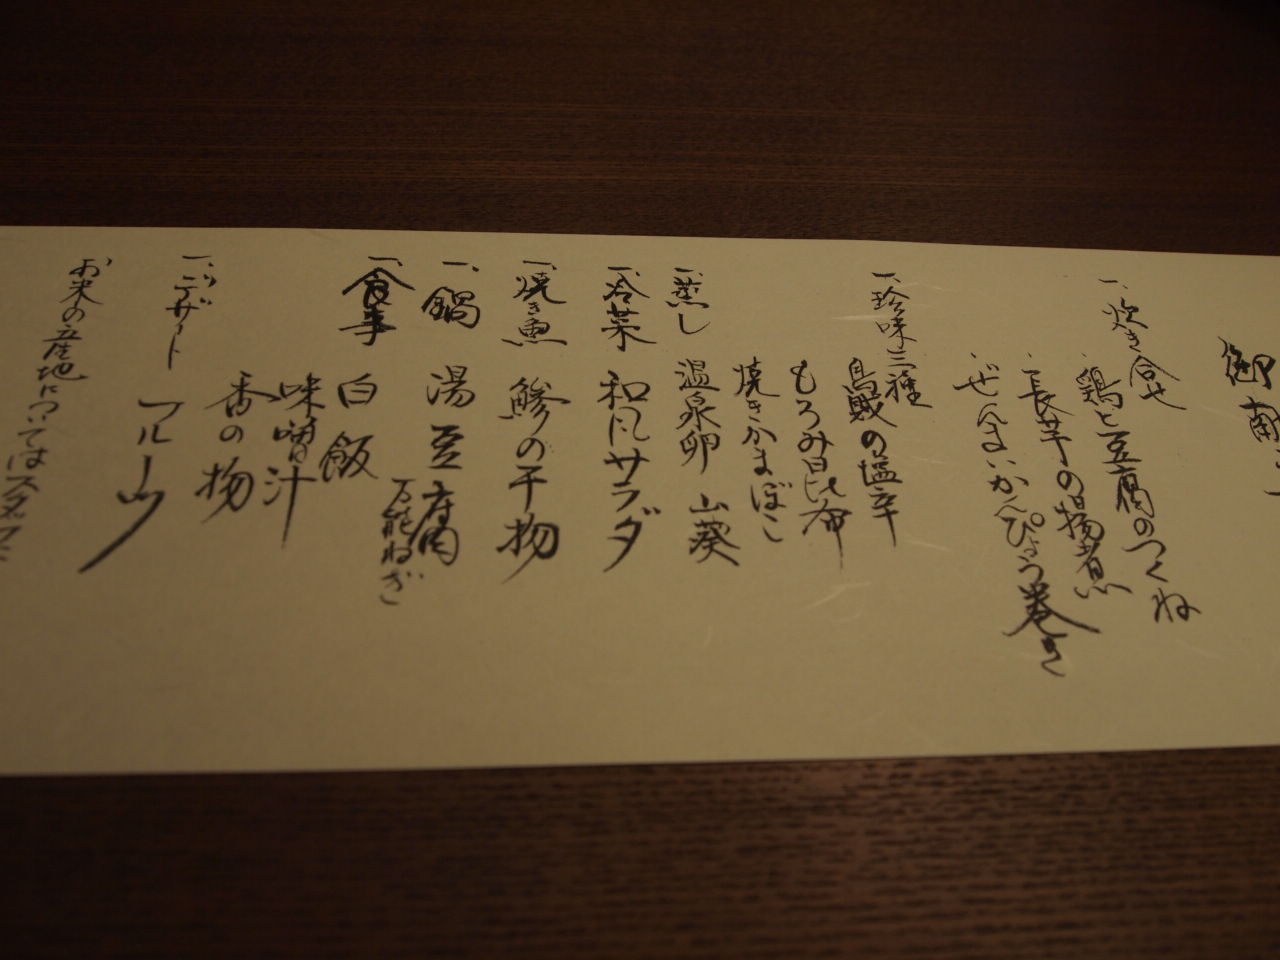 一、炊き合せ
・鶏と豆腐のつくね
・長芋の揚煮
・ぜんまいかんぴょう巻き
一、珍味三種
烏賊の塩辛
もろみ昆布
焼きかまぼこ
一、蒸し 温泉卵 山葵
一、冷菜 和風サラダ
一、焼き魚 鯵の干物
一、鍋 湯豆腐
万能ねぎ
一、食事 白飯
味噌汁
香の物
一、デザート フルーツ
お米の産地についてはスタッフに